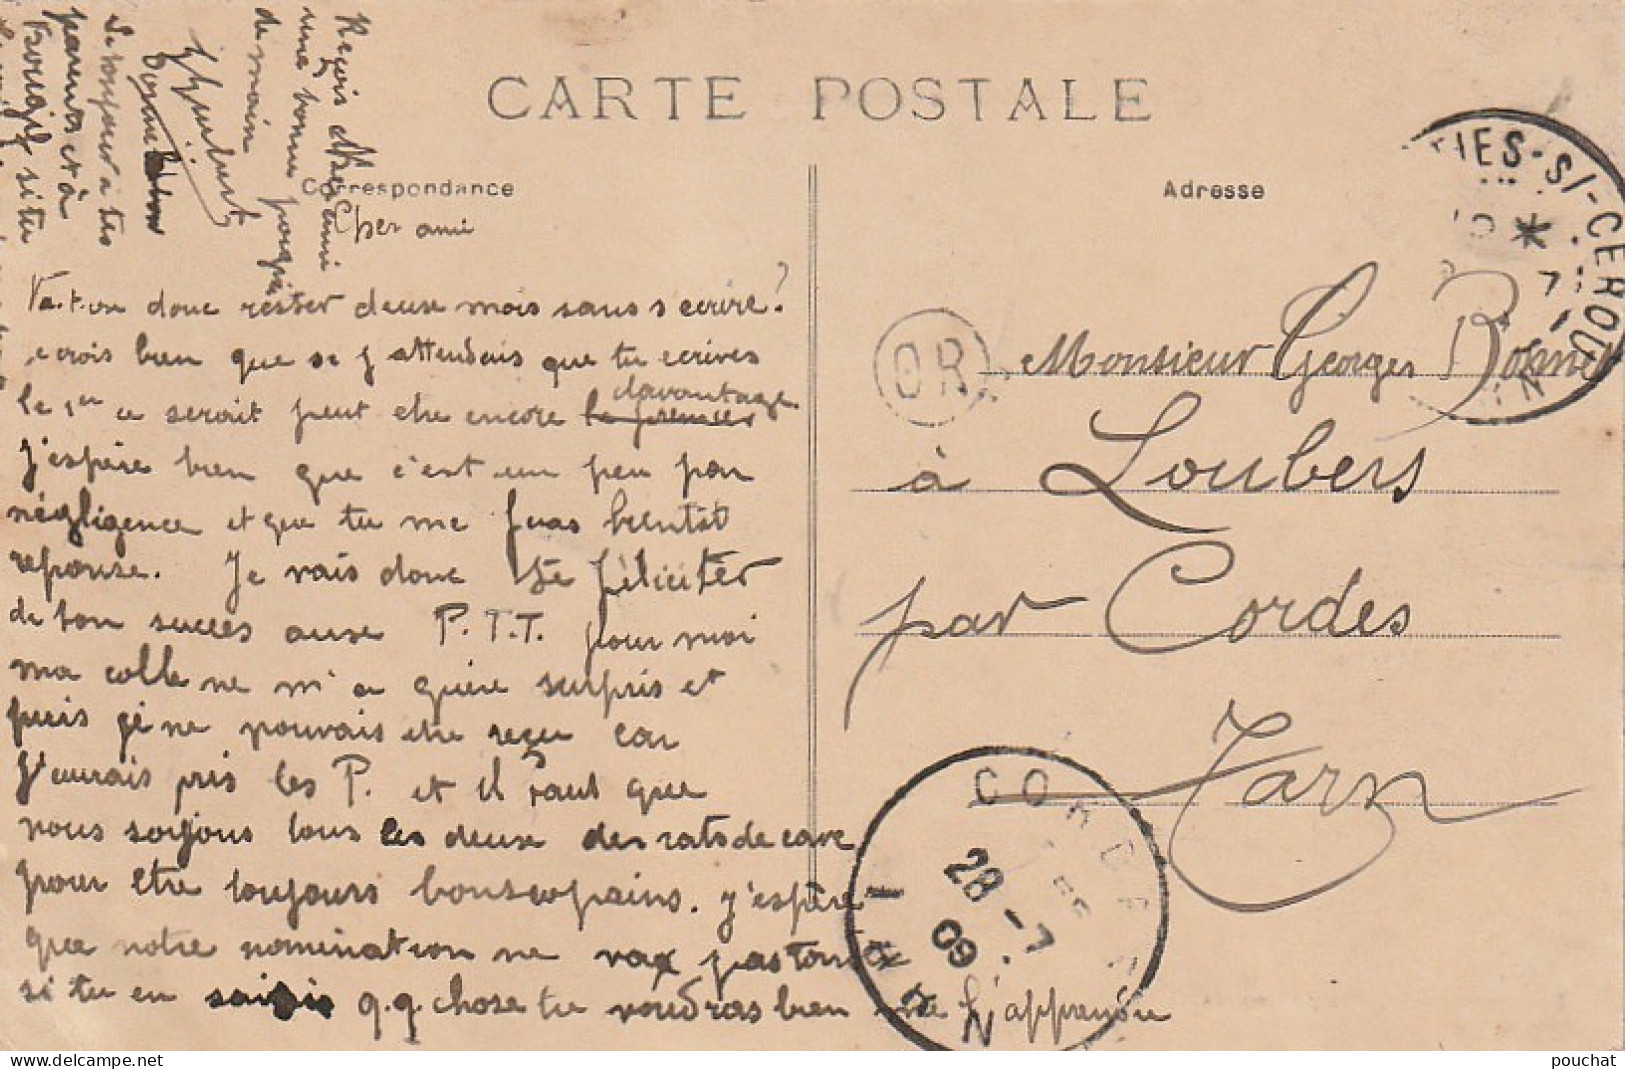 CARTE POSTALE
Correspondance
Adresse
Cher ami
Va-t-on donc rester deux mois sans s'ecrire?
crois bien que si j'attendais que tu ecrives
le 1er ce serait peut etre encore le premier davantage
J'espère bien que c'est un peu par
négligence et que tu me feras bientot
reponse. Je vais donc te féliciter
de ton succes aux P.T.T. pour moi
ma colle ne m'a guère surpris et
puis je ne pouvais etre reçu car
J'aurais pris les P. et il faut que
nous soyons tous les deux des rats de cave
pour etre toujours bons copains. J'espère
que notre nomination ne va pas
si tu en sais q.q. chose tu voudras bien me l'apprendre
Reçois cher ami
une bonne poignée
de main
Le bonjour à tes
parents et à
si tu
Monsieur Georges
à Loubers
par Cordes
Tarn
OR
IES-S/-CEROU
TARN
28 -7
09